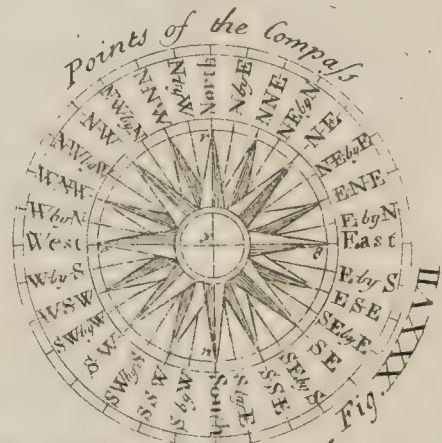 Points of the Compaſs
North
N by E
NNE
NE by N
NE
NE by E
ENE
E by N
East
E by S
ESE
SE by E
SE
SE by S
SSE
S by E
South
S by W
SSW
SW by S
SW
SW by W
WSW
W by S
West
W by N
WNW
NW by W
NW
NW by N
NNW
N by W
Fig. XXXVII